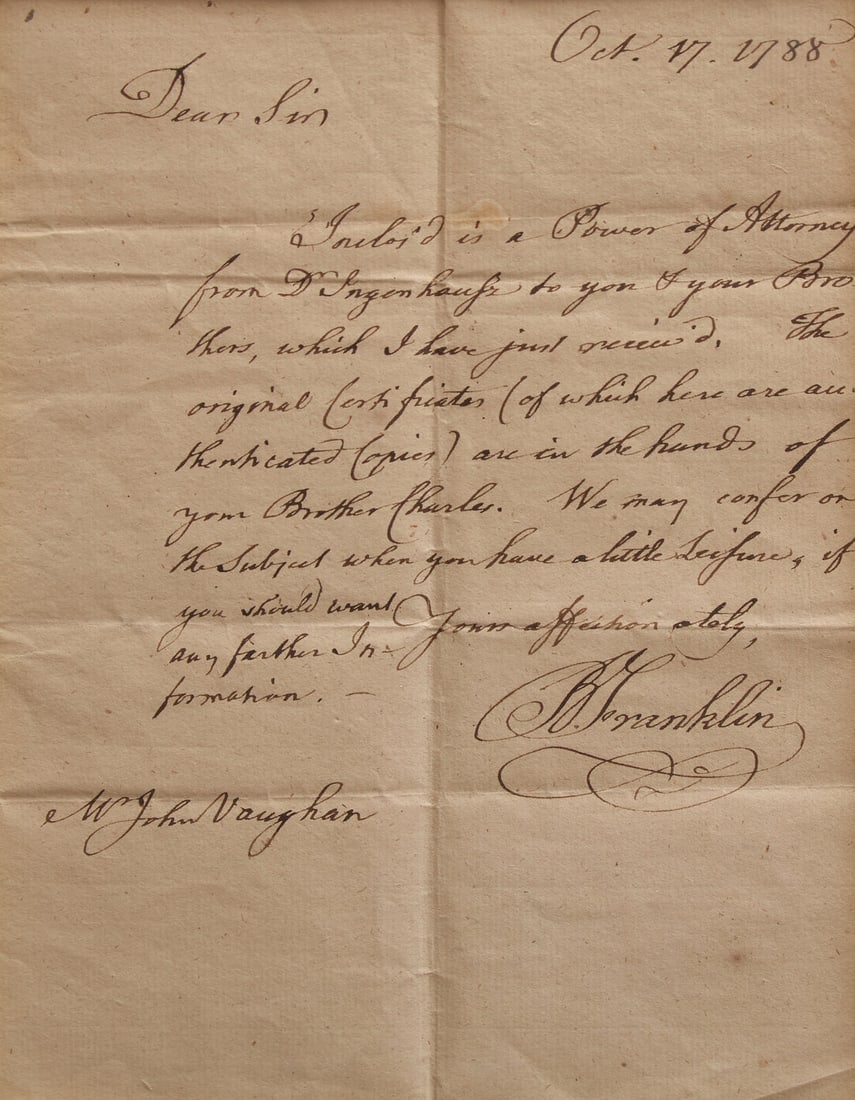 Oct. 17. 1788
Dear Sir
Inclos'd is a Power of Attorney
from Dr Ingenhausz to you & your Bro
thers, which I have just receiv'd. The
original Certificates (of which here are au-
thenticated Copies) are in the hands of
your Brother Charles. We may confer on
the Subject when you have a little Leisure, if
you should want
any farther In-
formation. —
Yours affectionately,
B Franklin
Mr John Vaughan